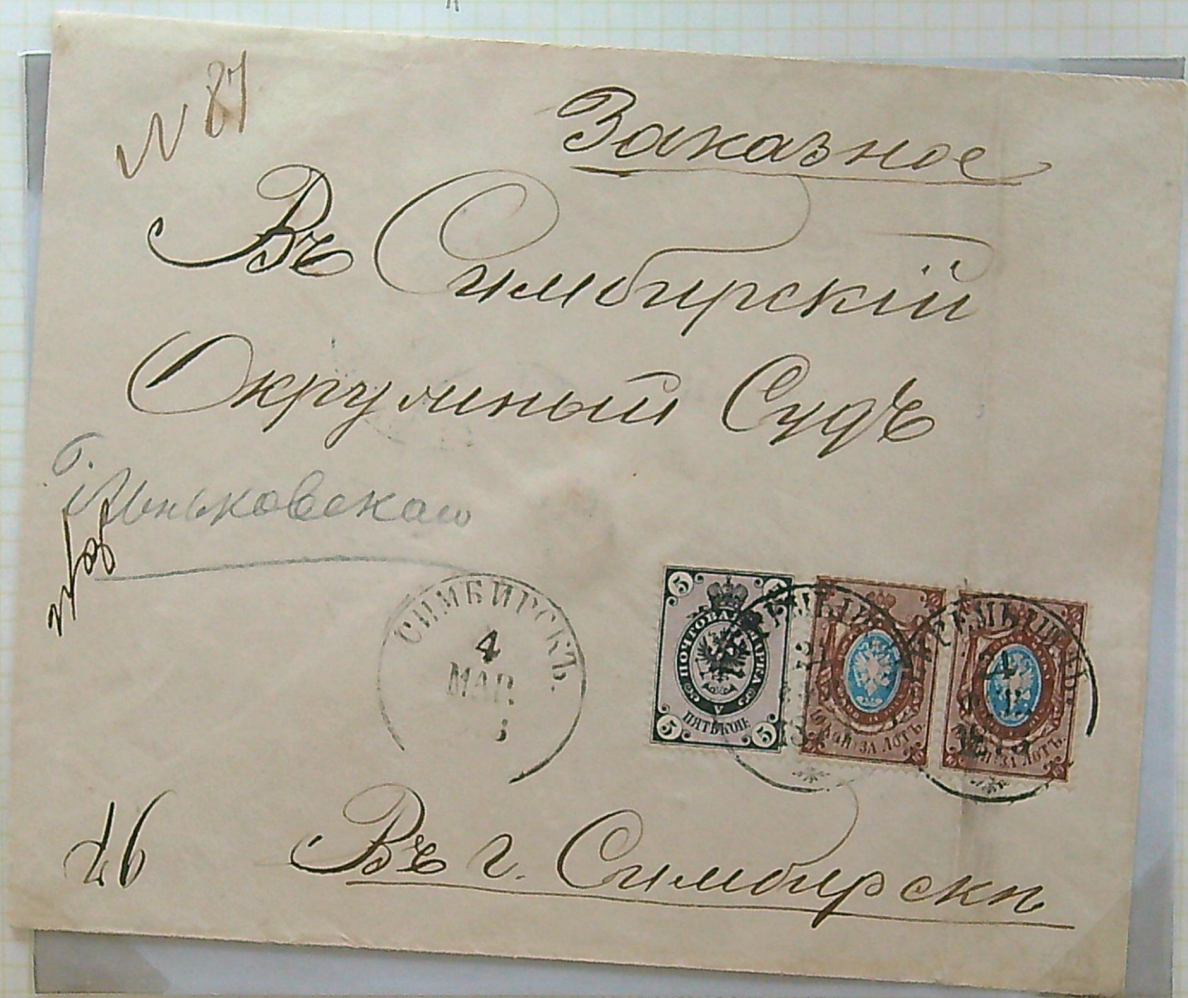 N 87
Заказное
Въ Симбирскій
Окружный Судъ
СИМБИРСКЪ.
4
МАР.
5 5
ПОЧТОВАЯ МАРКА
V
ПЯТЬ КОП.
5 5
10 КОП. ЗА ЛОТЪ
10 КОП. ЗА ЛОТЪ
Въ г. Симбирскъ